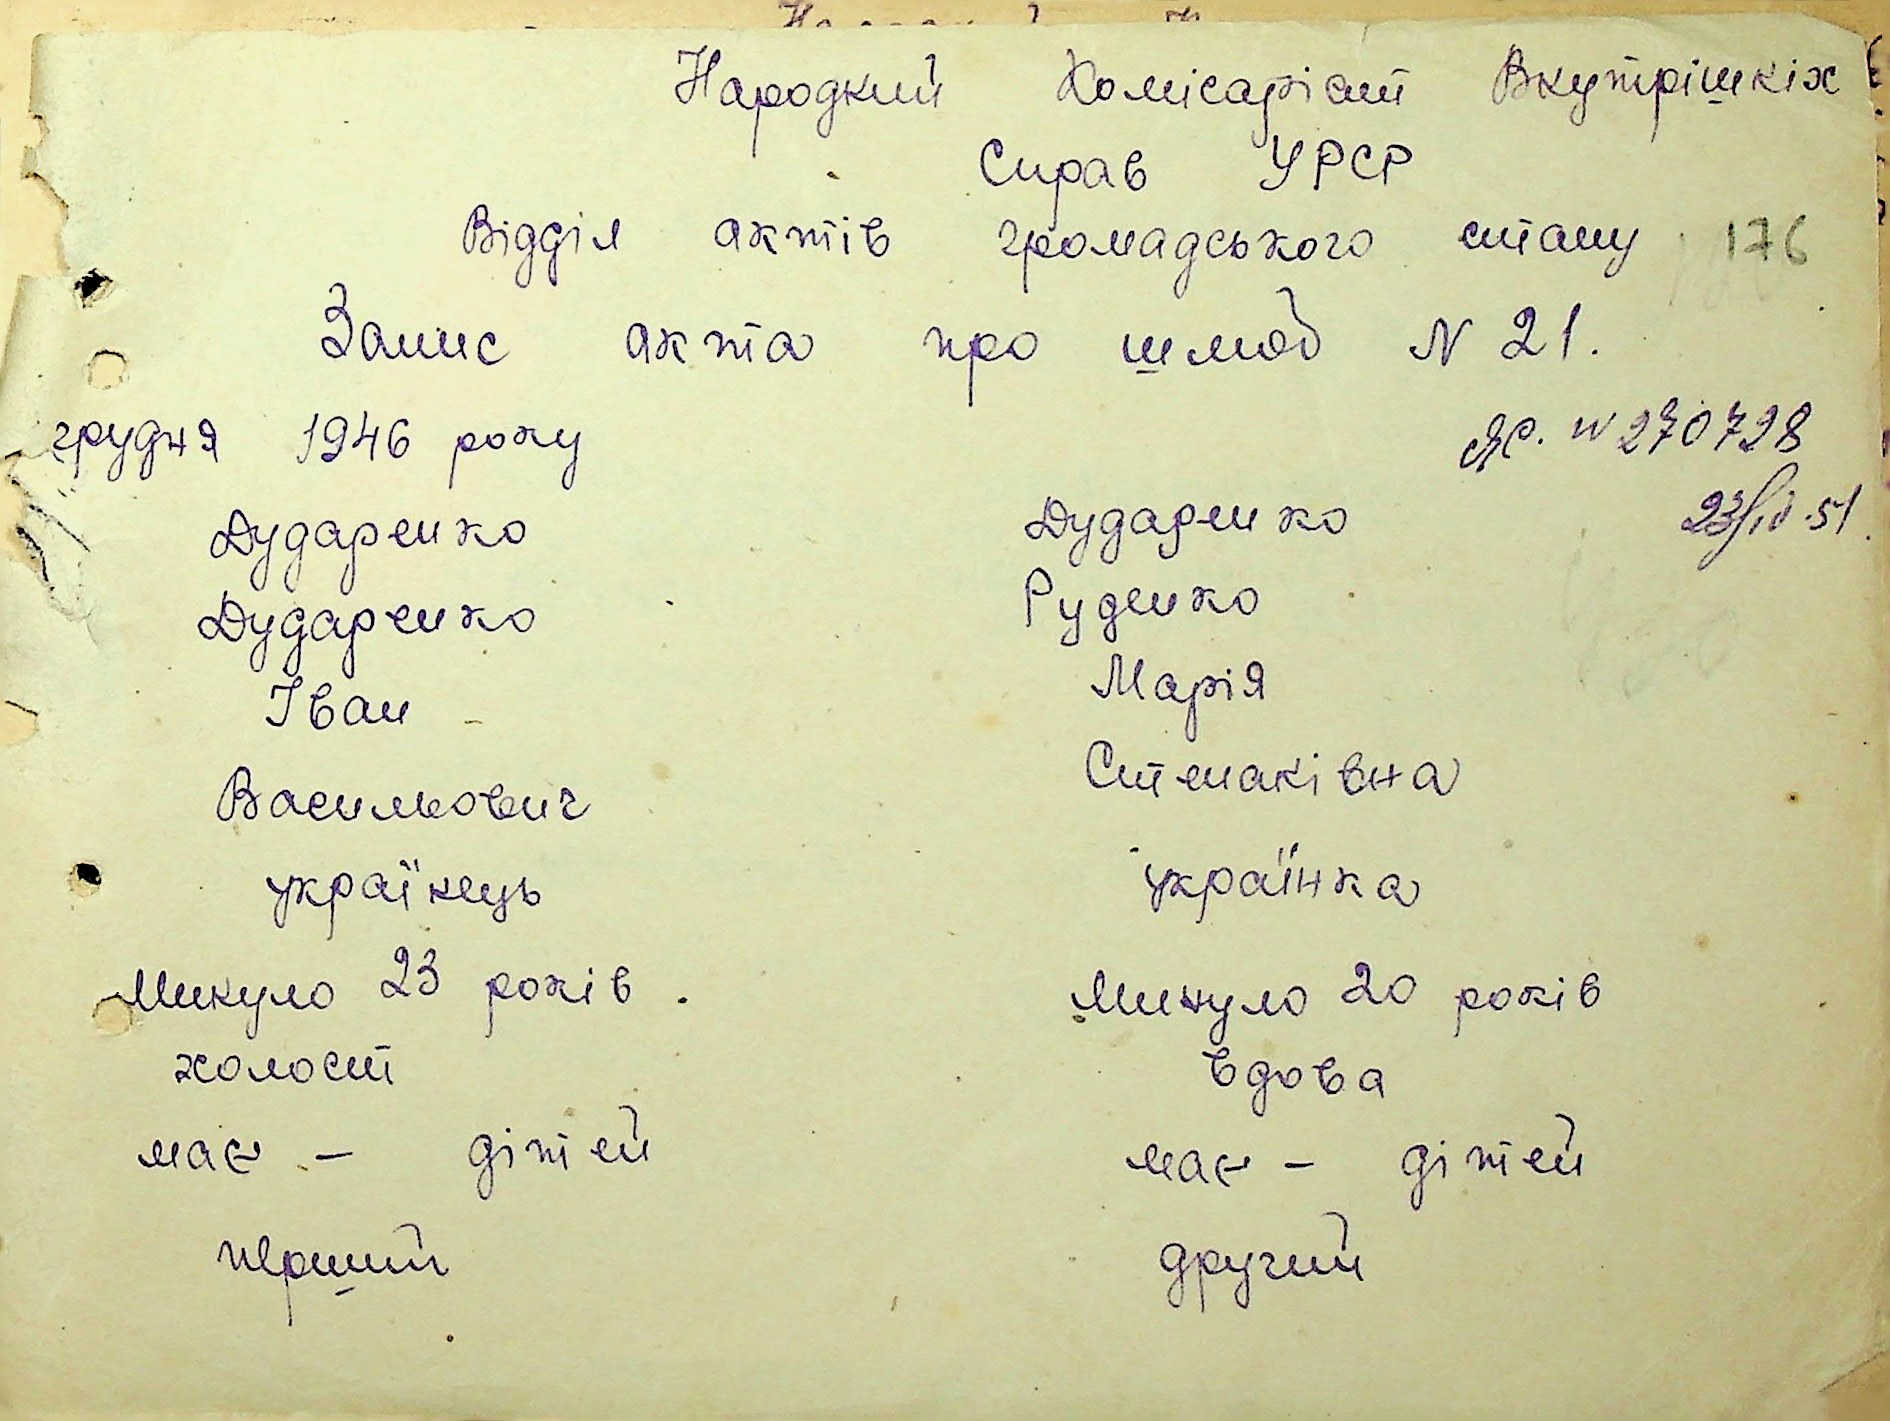 Народний Комісаріат Внутрішніх
Справ УРСР
Відділ актів громадського стану 176
Запис акта про шлюб N 21.
грудня 1946 року
N 270728
Дударенко Дударенко
23/IV-51
Дударенко Руденко
Іван Марія
Васильович Степанівна
українець українка
Минуло 23 років. Минуло 20 років
холост вдова
має - дітей має - дітей
перший другий